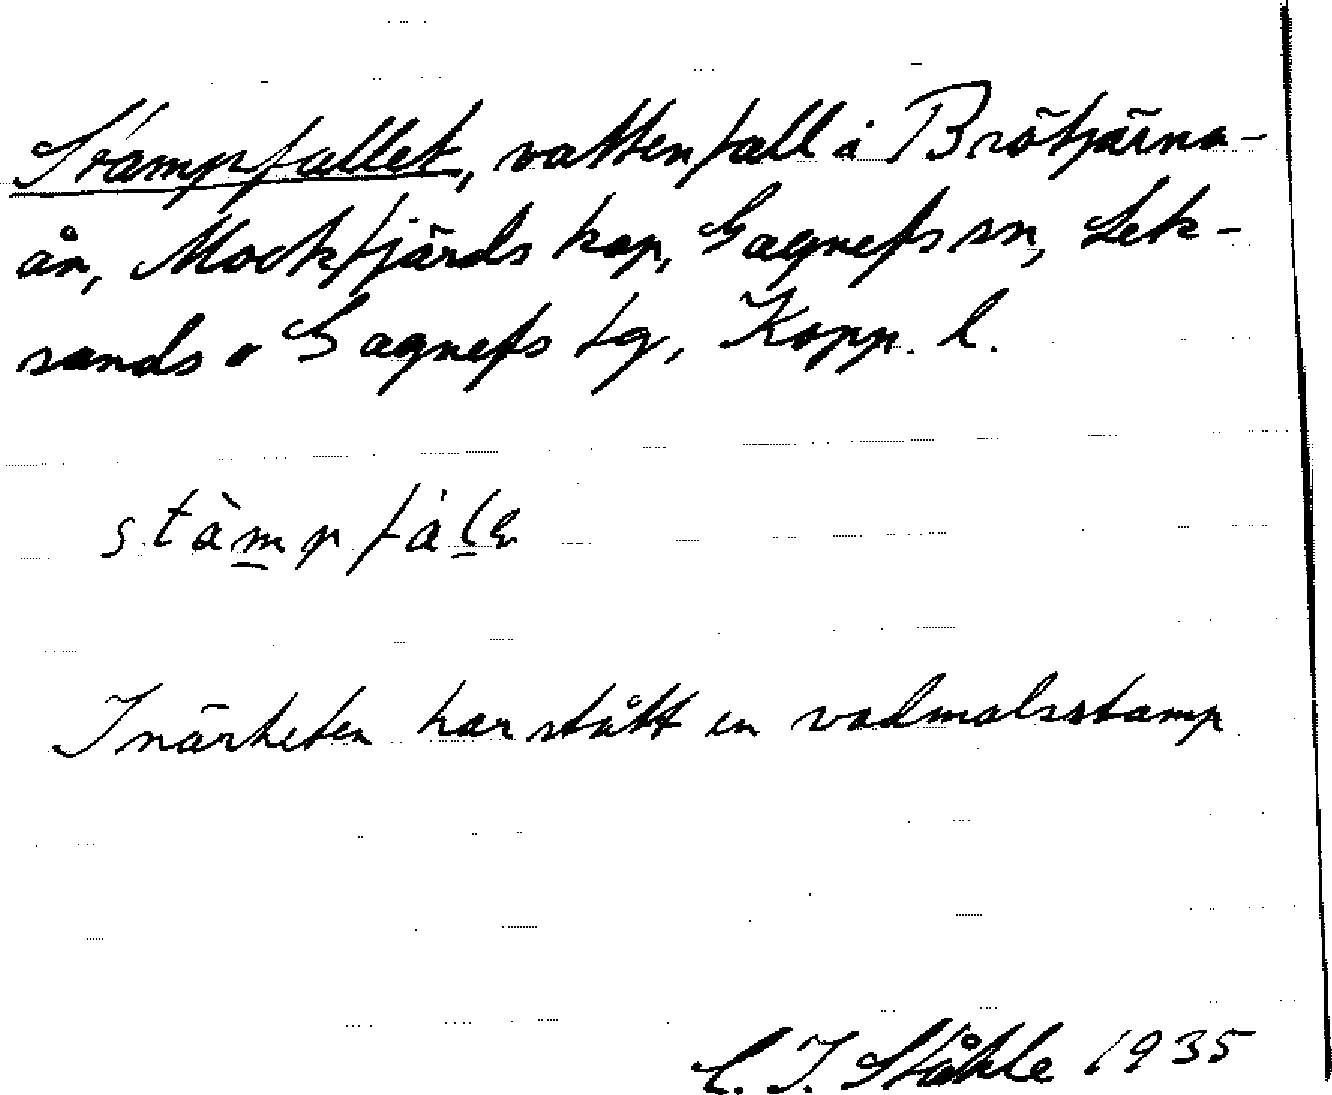 Stampfallet, vattenfall i Brötjärna-
ån, Mockfjärds kap, Gagnefs sn, Lek-
sands o Gagnefs tg, Kopp. l.
stàmpfálɛ
I närheten har stått en vadmalsstamp
C. I. Ståhle 1935